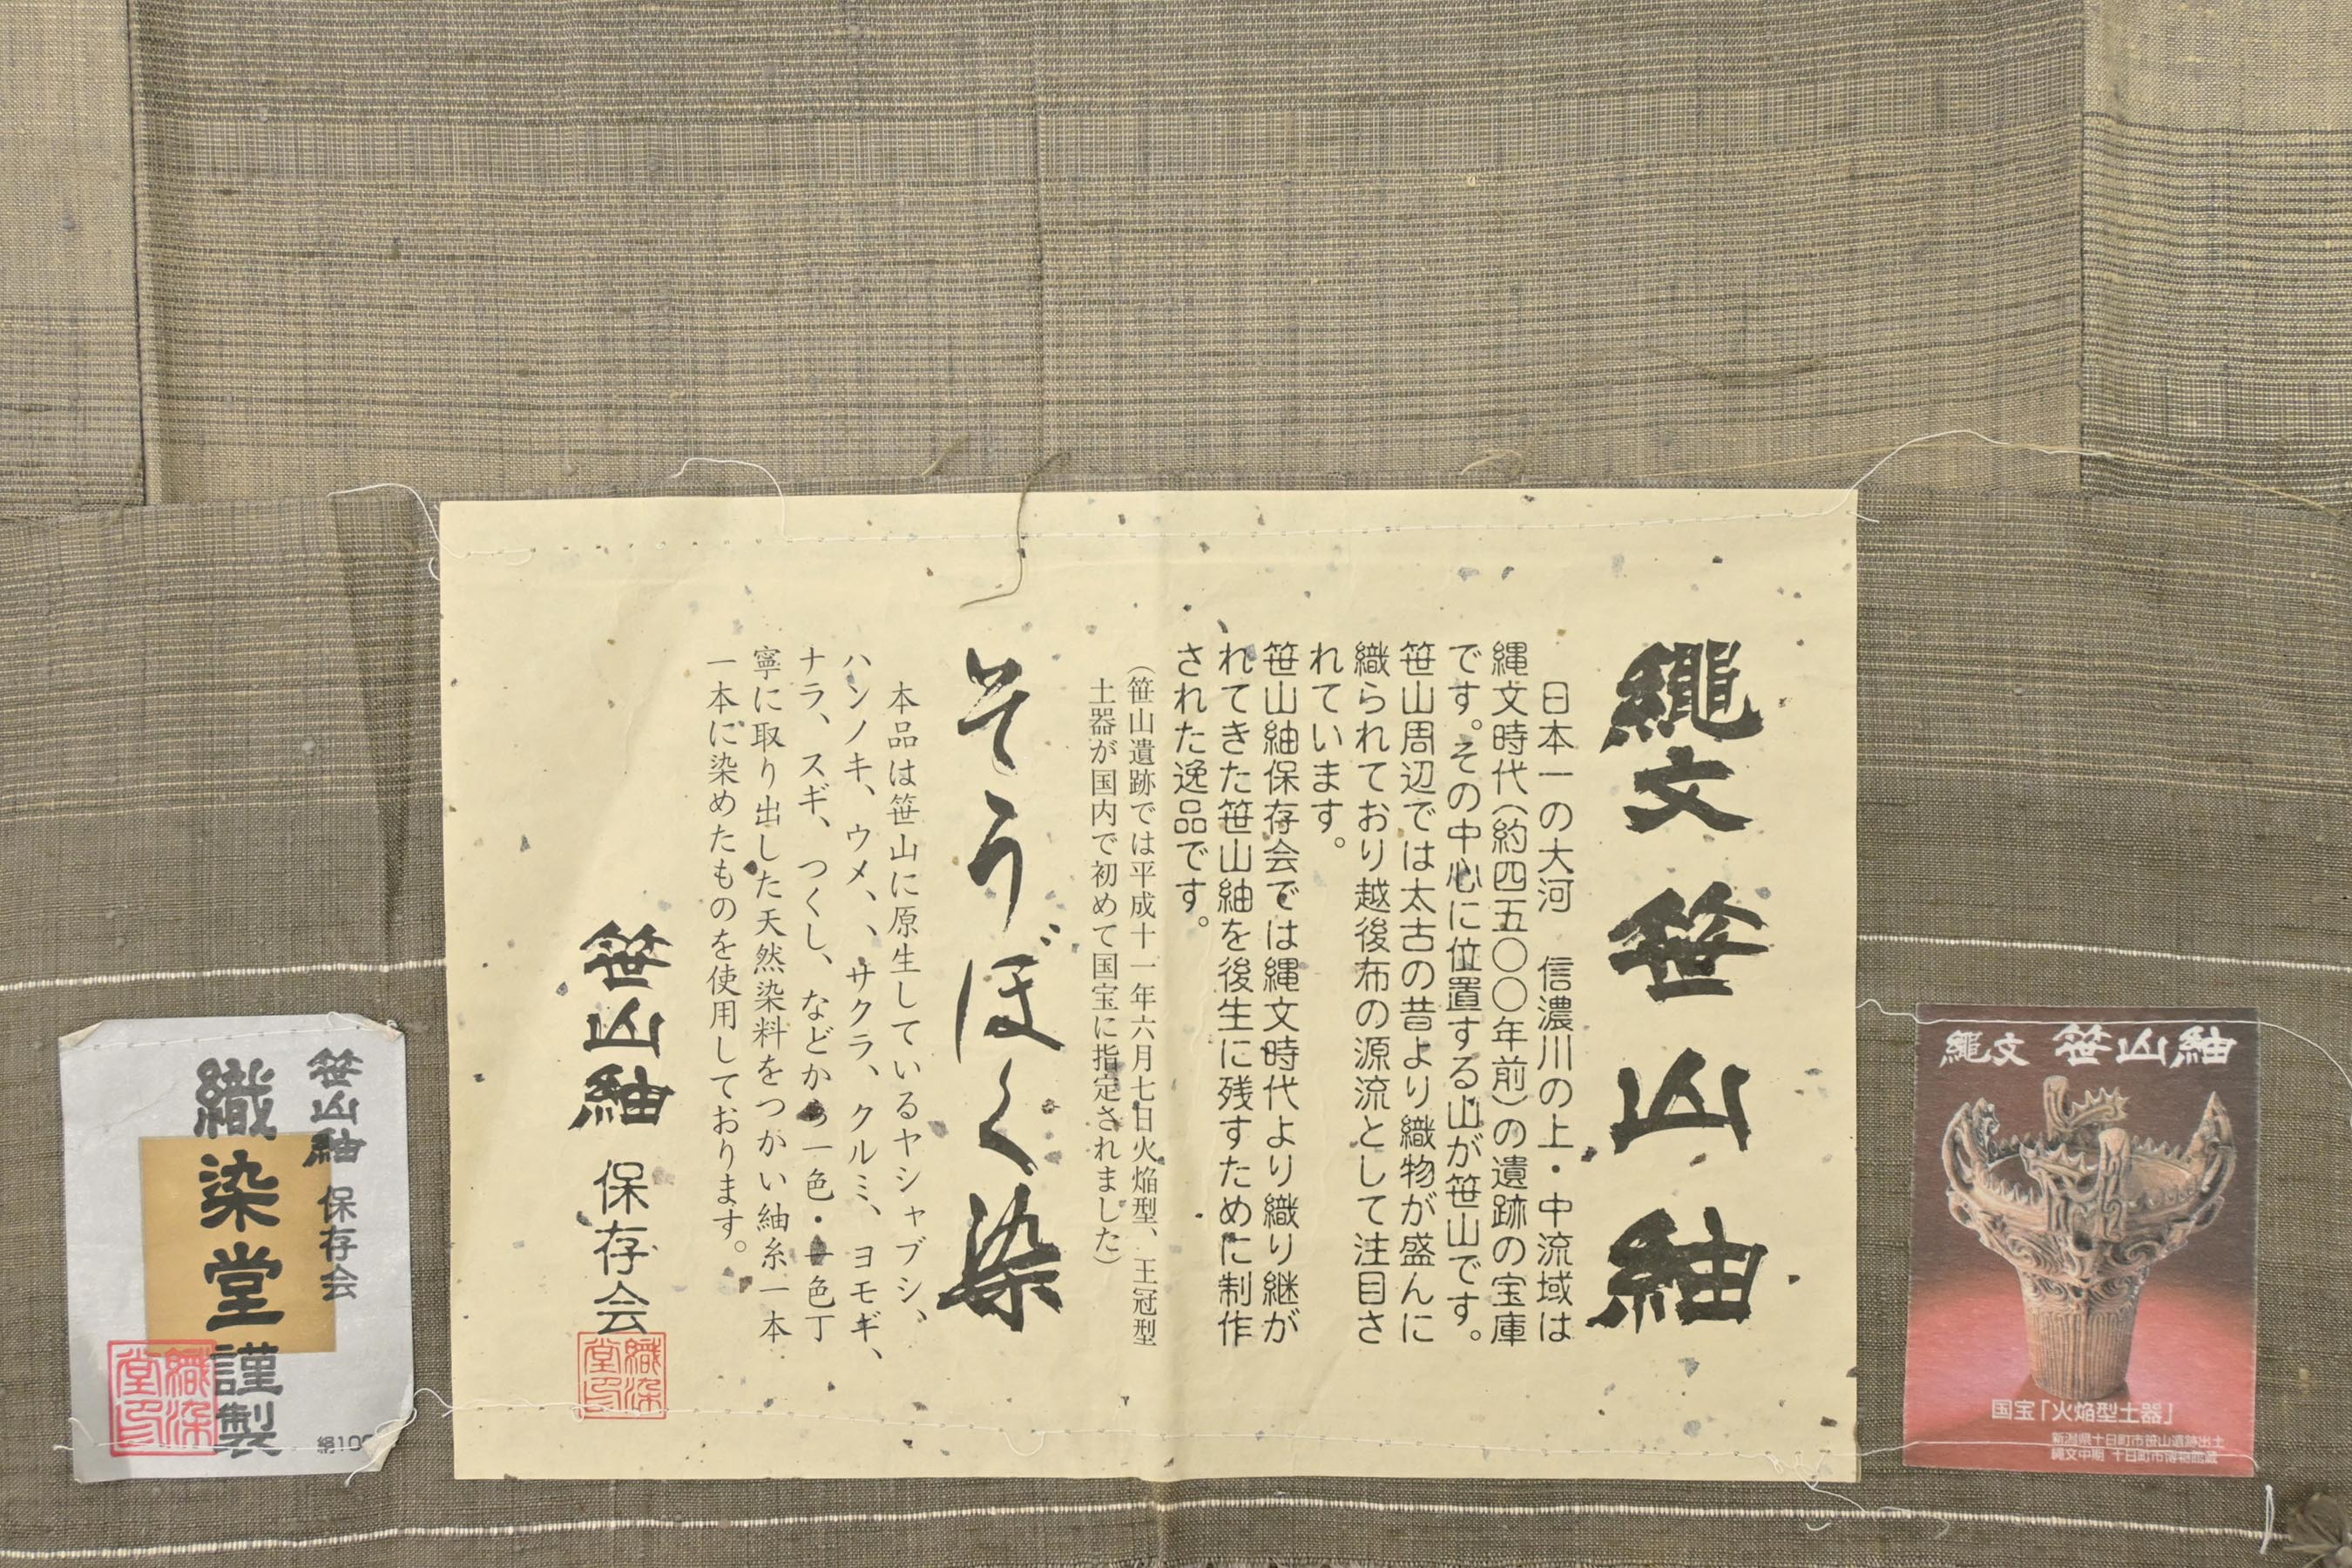 縄文 笹山紬
日本一の大河 信濃川の上・中流域は
縄文時代(約四五〇〇年前)の遺跡の宝庫
です。その中心に位置する山が笹山です。
笹山周辺では太古の昔より織物が盛んに
織られており越後布の源流として注目さ
れています。
笹山紬保存会では縄文時代より織り継が
れてきた笹山紬を後生に残すために制作
された逸品です。
(笹山遺跡では平成十一年六月七日火焔型、王冠型
土器が国内で初めて国宝に指定されました)
そうぼく染
本品は笹山に原生しているヤシャブシ、
ハンノキ、ウメ、、サクラ、クルミ、ヨモギ、
ナラ、スギ、つくし、などから一色・一色丁
寧に取り出した天然染料をつかい紬糸一本
一本に染めたものを使用しております。
笹山紬 保存会
織染堂印
縄文 笹山紬
国宝「火焔型土器」
新潟県十日町市笹山遺跡出土
縄文中期 十日町市博物館蔵
笹山紬 保存会
織染堂謹製
織染堂印
絹100